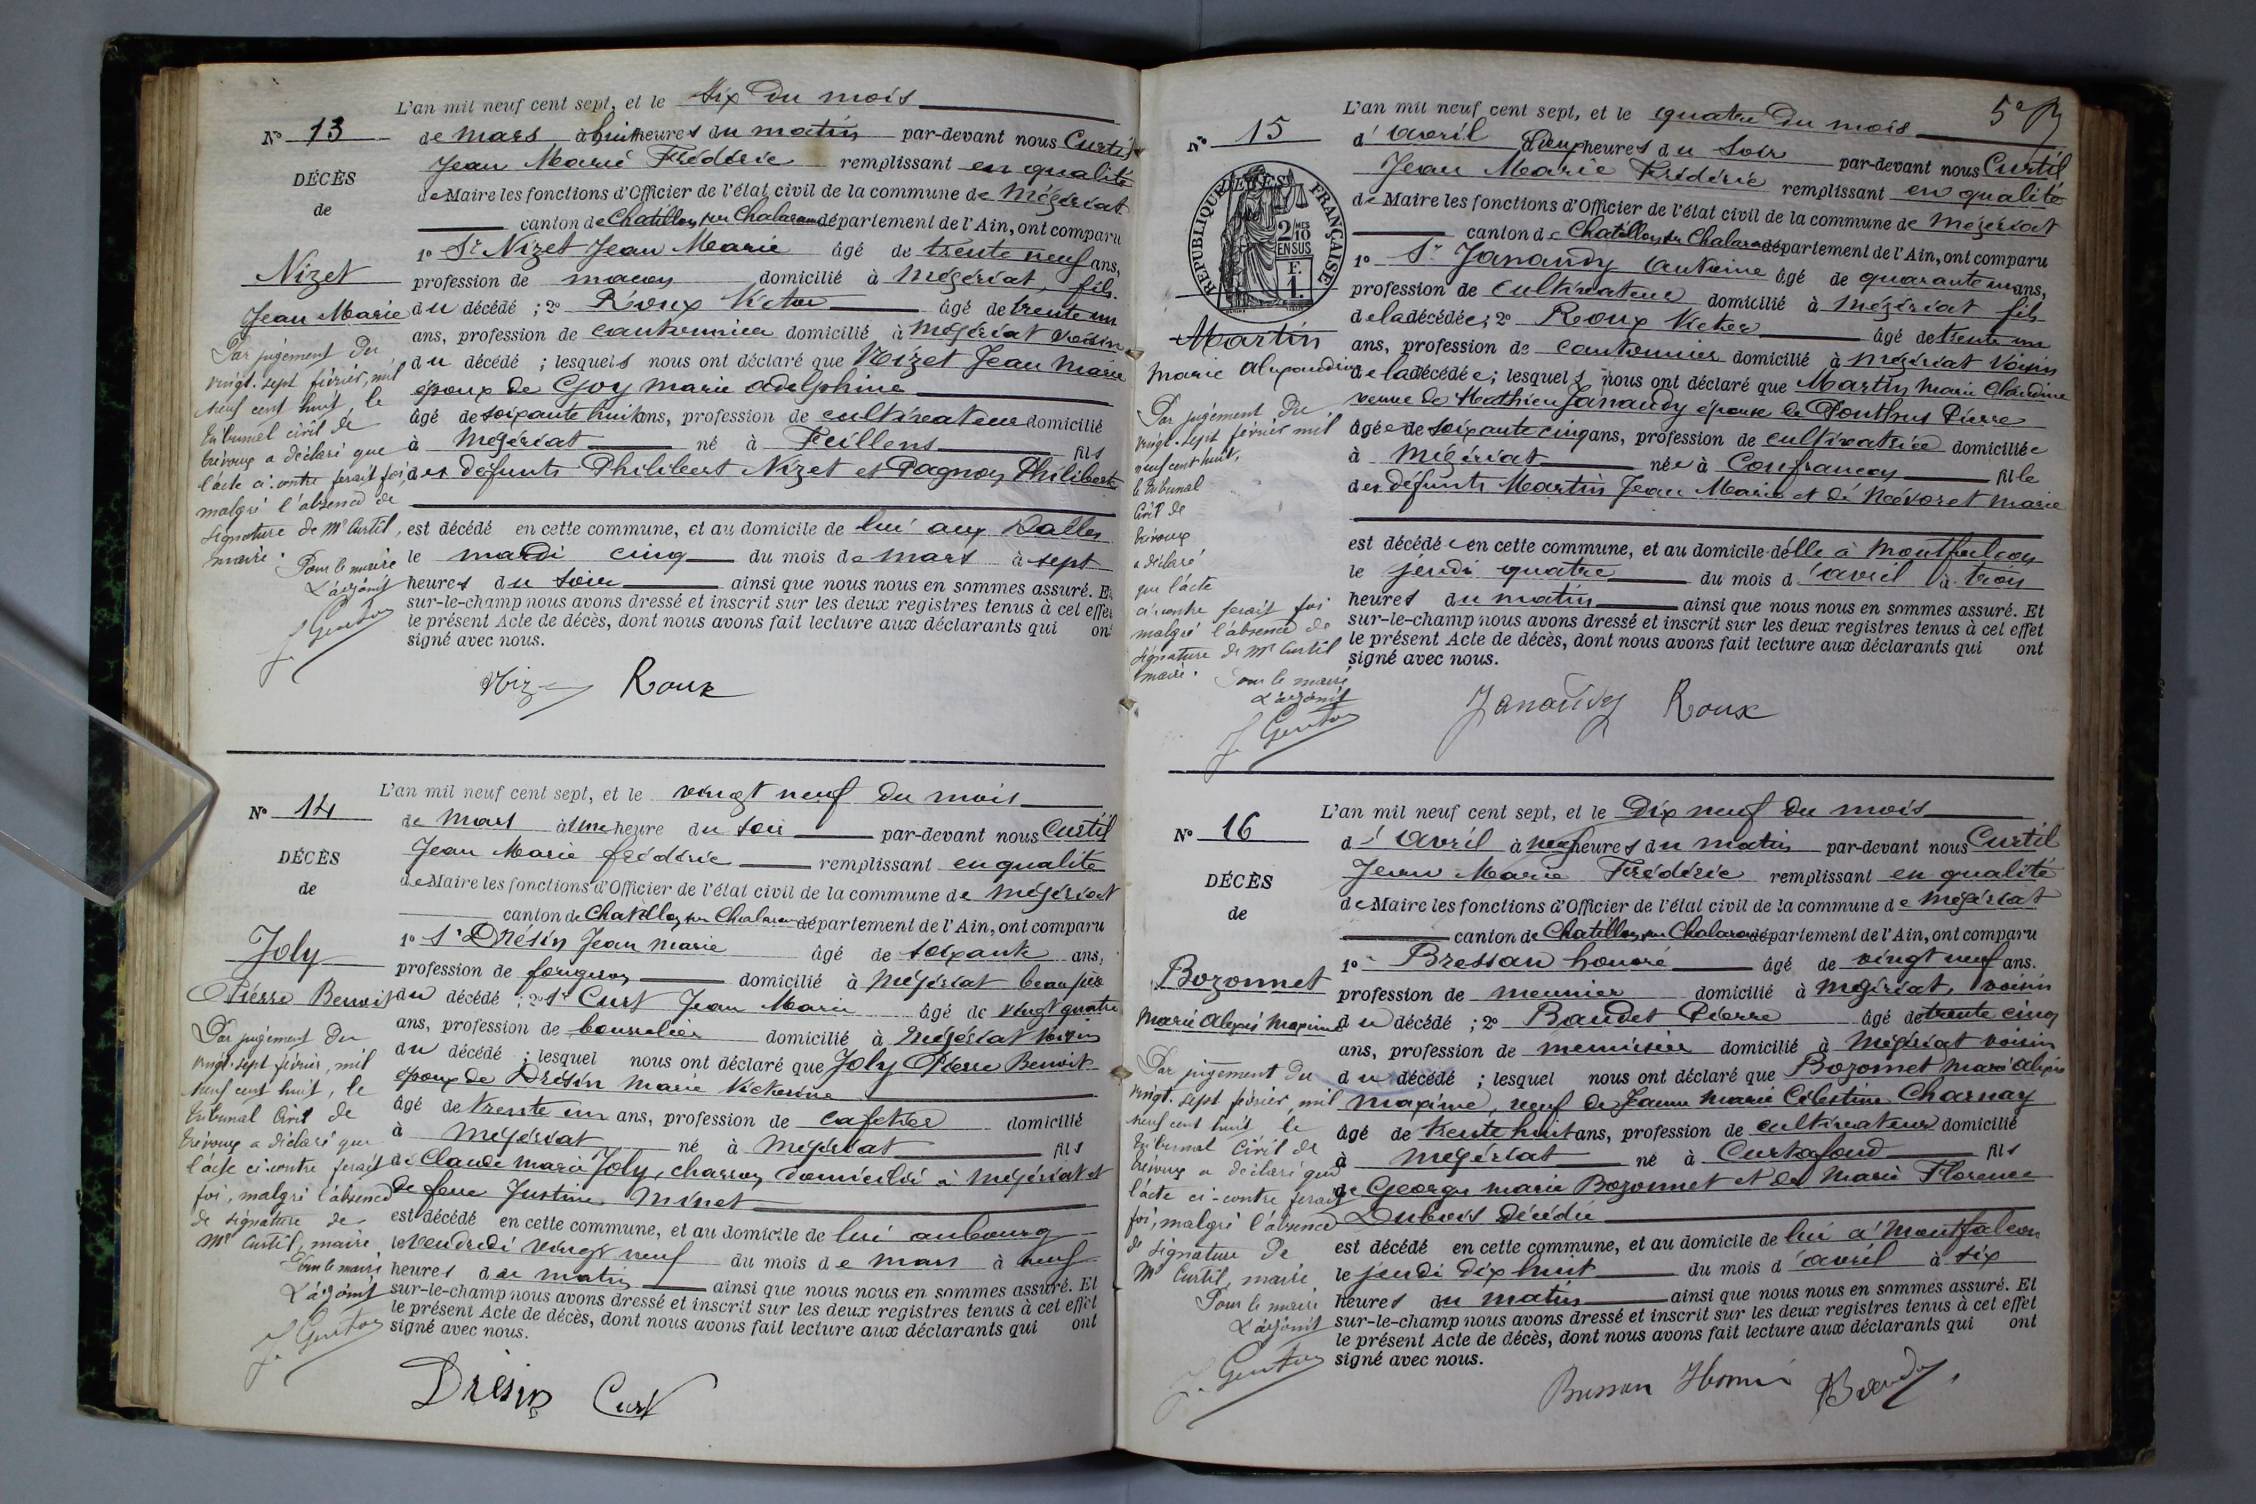 L'an mil neuf cent sept, et le six du mois
N° 13
de mars à huit heures du matin par-devant nous Curtil
Jean Marie Frédéric remplissant en qualité
DÉCÈS
de Maire les fonctions d'Officier de l'état civil de la commune de Mézériat
de
canton de Chatillon sur Chalaronne département de l'Ain, ont comparu
1° Sr Nizet Jean Marie âgé de trente neuf ans,
Nizet
profession de maçon domicilié à Mézériat, fils
Jean Marie
du décédé ; 2° Roux Victor âgé de trente un
ans, profession de cantonnier domicilié à Mézériat voisin
du décédé ; lesquels nous ont déclaré que Nizet Jean Marie
époux de Goy Marie Adelphine
âgé de soixante huit ans, profession de cultivateur domicilié
à Mézériat né à Feillens fils
des défunts Philibert Nizet et Pagnon Philiberte
est décédé en cette commune, et au domicile de lui aux Dalles
le mardi cinq du mois de mars à sept
heures du soir ainsi que nous nous en sommes assuré. Et
sur-le-champ nous avons dressé et inscrit sur les deux registres tenus à cet effet
le présent Acte de décès, dont nous avons fait lecture aux déclarants qui ont
signé avec nous.
Par jugement du
vingt-sept février, mil
neuf cent huit, le
tribunal civil de
Trévoux a déclaré que
l'acte ci-contre ferait foi,
malgré l'absence de
signature de Mr Curtil,
maire.
Pour le maire
L'adjoint
J. Genton
Niz Roux
L'an mil neuf cent sept, et le vingt neuf du mois
N° 14
de Mars à une heure du soir par-devant nous Curtil
Jean Marie frédéric remplissant en qualité
DÉCÈS
de Maire les fonctions d'Officier de l'état civil de la commune de Mézériat
de
canton de Chatillon sur Chalaronne département de l'Ain, ont comparu
1° Sr Drésin Jean Marie âgé de soixante ans,
Joly
profession de forgeron domicilié à Mézériat beau père
Pierre Benoit
du décédé ; 2° Sr Curt Jean Marie âgé de vingt quatre
ans, profession de bourrelier domicilié à Mézériat voisin
du décédé ; lesquel nous ont déclaré que Joly Pierre Benoit
époux de Drésin Marie Victorine
âgé de trente un ans, profession de cafetier domicilié
à Mézériat né à Mézériat fils
de Claude Marie Joly, charron, domicilié à Mézériat et
de feue Justine Minet
est décédé en cette commune, et au domicile de lui au bourg
le vendredi vingt neuf du mois de mars à neuf
heures du matin ainsi que nous nous en sommes assuré. Et
sur-le-champ nous avons dressé et inscrit sur les deux registres tenus à cet effet
le présent Acte de décès, dont nous avons fait lecture aux déclarants qui ont
signé avec nous.
Par jugement du
vingt-sept février, mil
neuf cent huit, le
tribunal Civil de
Trévoux a déclaré que
l'acte ci-contre ferait
foi, malgré l'absence
de signature de
Mr Curtil, maire
Pour le maire
L'adjoint
J. Genton
Drésin Curt
5e
L'an mil neuf cent sept, et le quatre du mois
N° 15
d'avril à deux heures du soir par-devant nous Curtil
Jean Marie Frédéric remplissant en qualité
de Maire les fonctions d'Officier de l'état civil de la commune de Mézériat
canton de Chatillon sur Chalaronne département de l'Ain, ont comparu
RÉPUBLIQUE FRANÇAISE
2/10 EN SUS
F. 1.
1° Sr Janaudy Antoine âgé de quarante un ans,
profession de cultivateur domicilié à Mézériat fils
de la décédée ; 2° Roux Victor âgé de trente un
Martin
ans, profession de cantonnier domicilié à Mézériat voisin
de la décédée ; lesquels nous ont déclaré que Martin Marie Claudine
veuve de Mathieu Janaudy épouse de Ponthus Pierre
âgée de soixante cinq ans, profession de cultivatrice domiciliée
à Mézériat née à Confrançon fille
des défunts Martin Jean Marie et de Névoret Marie
est décédée en cette commune, et au domicile d'elle à Montfalcon
le jeudi quatre du mois d'avril à trois
heures du matin ainsi que nous nous en sommes assuré. Et
sur-le-champ nous avons dressé et inscrit sur les deux registres tenus à cet effet
le présent Acte de décès, dont nous avons fait lecture aux déclarants qui ont
signé avec nous.
Marie
Par jugement du
vingt-sept février mil
neuf cent huit,
le tribunal
Civil de
Trévoux
a déclaré
que l'acte
ci-contre ferait foi
malgré l'absence de
signature de Mr Curtil
maire.
Pour le maire
L'adjoint
J. Genton
Janaudy Roux
L'an mil neuf cent sept, et le Dix neuf du mois
N° 16
d'avril à neuf heures du matin par-devant nous Curtil
Jean Marie Frédéric remplissant en qualité
DÉCÈS
de Maire les fonctions d'Officier de l'état civil de la commune de Mézériat
de
canton de Chatillon sur Chalaronne département de l'Ain, ont comparu
1° Bressan honoré âgé de vingt neuf ans.
Bozonnet
profession de meunier domicilié à Mézériat, voisin
Marie Alexis Maxime
du décédé ; 2° Baudet Pierre âgé de trente cinq
ans, profession de menuisier domicilié à Mézériat voisin
du décédé ; lesquel nous ont déclaré que Bozonnet Marie Alexis
Maxime, veuf de Jeanne Marie Célestine Charnay
âgé de trente huit ans, profession de cultivateur domicilié
à Mézériat né à Curtafond fils
de George Marie Bozonnet et de Marie Florence
Dubois décédée
est décédé en cette commune, et au domicile de lui à Montfalcon
le jeudi dix huit du mois d'avril à six
heures du matin ainsi que nous nous en sommes assuré. Et
sur-le-champ nous avons dressé et inscrit sur les deux registres tenus à cet effet
le présent Acte de décès, dont nous avons fait lecture aux déclarants qui ont
signé avec nous.
Par jugement du
vingt-sept février, mil
neuf cent huit, le
tribunal Civil de
Trévoux a déclaré que
l'acte ci-contre ferait
foi, malgré l'absence
de signature de
Mr Curtil, maire
Pour le maire
L'adjoint
J. Genton
Bressan Honoré